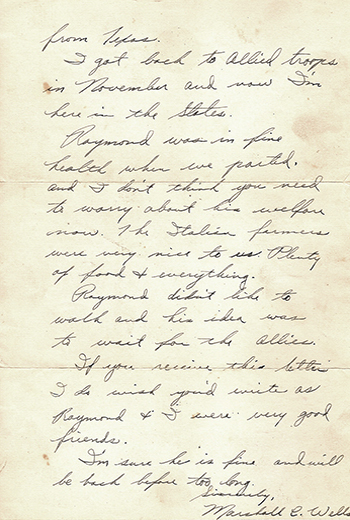 from Texas.
I got back to Allied troops
in November and now I'm
here in the States.
Raymond was in fine
health when we parted.
and I don't think you need
to worry about his welfare
now. The Italian farmers
were very nice to us. Plenty
of food & everything.
Raymond didn't like to
walk and his idea was
to wait for the Allies.
If you receive this letter
I do wish you'd write as
Raymond & I were very good
friends.
I'm sure he is fine and will
be back before too long.
Sincerely,
Marshall E. Wells